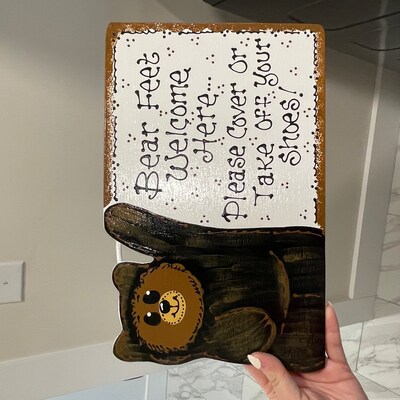 Bear Feet
Welcome
Here...
Please Cover Or
Take off Your
Shoes!